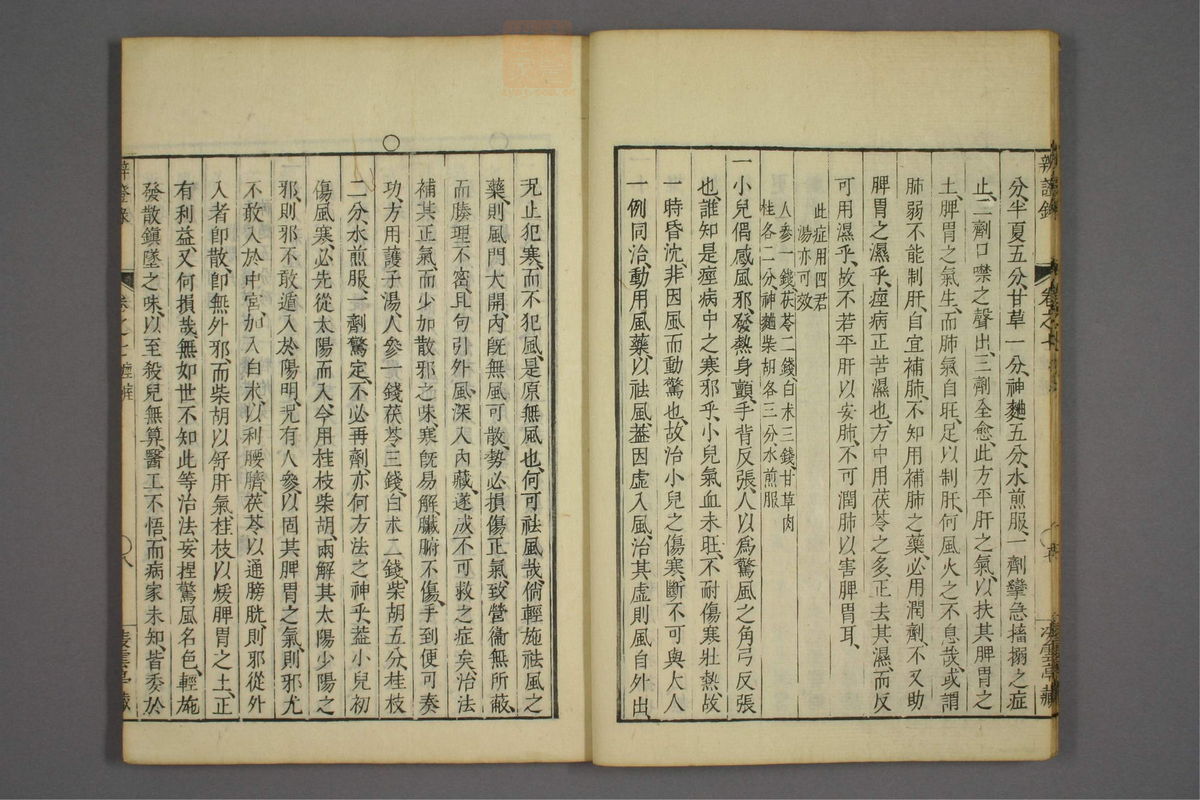 分、半夏五分、甘草一分、神麯五分、水煎服、一劑攣急搐搦之症
止、二劑口噤之聲出、三劑全愈、此方平肝之氣、以扶其脾胃之
土、脾胃之氣生、而肺氣自旺、足以制肝、何風火之不息哉、或謂
肺弱不能制肝、自宜補肺、不知用補肺之藥、必用潤劑、不又助
脾胃之濕乎、痙病正苦濕也、方中用茯苓之多、正去其濕、而反
可用濕乎、故不若平肝以安肺、不可潤肺以害脾胃耳、
此症用四君
湯亦可效
人參一錢茯苓二錢白朮三錢甘草肉
桂各二分、神麯柴胡各三分、水煎服
一小兒偶感風邪、發熱身顫、手背反張、人以爲驚風之角弓反張
也、誰知是痙病中之寒邪乎、小兒氣血未旺、不耐傷寒壯熱、故
一時昏沈、非因風而動驚也、故治小兒之傷寒、斷不可與大人
一例同治、動用風藥、以祛風、蓋因虛入風、治其虛則風自外出、
况止犯寒、而不犯風、是原無風也、何可祛風哉、倘輕施祛風之
藥、則風門大開、內旣無風可散、勢必損傷正氣、致營衞無所蔽、
而腠理不密、且勾引外風、深入內藏、遂成不可救之症矣、治法
補其正氣、而少加散邪之味、寒旣易解、臟腑不傷、手到便可奏
功、方用護子湯、人參一錢茯苓三錢、白朮二錢、柴胡五分、桂枝
二分、水煎服、一劑驚定、不必再劑、亦何方法之神乎、蓋小兒初
傷風寒、必先從太陽而入、今用桂枝柴胡、兩解其太陽少陽之
邪、則邪不敢遁入於陽明、况有人參、以固其脾胃之氣、則邪尤
不敢入於中宮、加入白朮、以利腰臍、茯苓以通膀胱、則邪從外
入者卽散、卽無外邪、而柴胡以舒肝氣、桂枝以煖脾胃之土、正
有利益、又何損哉、無如世不知此等治法、妄捏驚風名色、輕施
發散鎭墜之味、以至殺兒無算、醫工不悟、而病家未知、皆委於
辨證錄
卷之七 痙痓
八